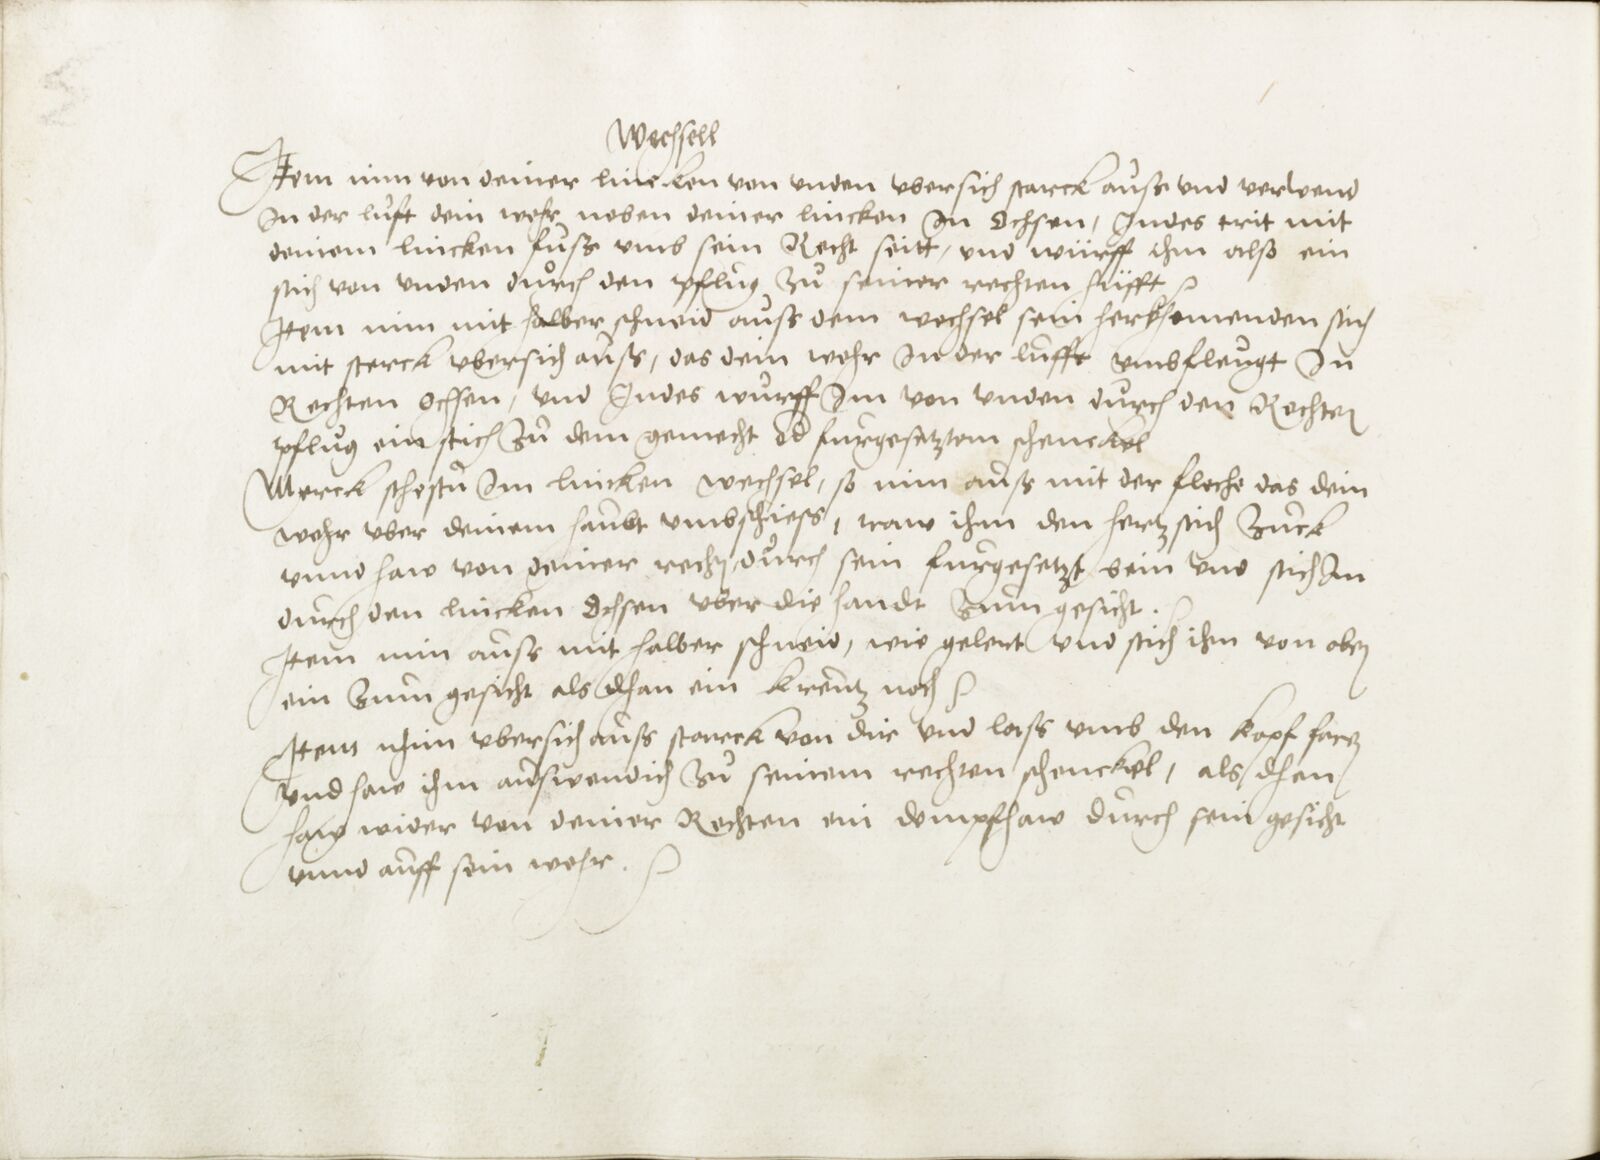 Wechsell
Item nim von deiner lincken von unden ubersich starck auß und verwend
In der luft dein wehr neben deiner lincken In Ochsen, Indes trit mit
deinem lincken fuß umb sein Recht seitt, und würff ihm also ein
stich von unden durch den pflug zu seiner rechten hüfft
Item nim mit halber schneid auß dem wechsel sein herkhomenden stich
mit sterck ubersich auß, das dein wehr In der lufft umbfleugt In
Rechten Ochsen, und Indes wurff Im von unden durch den Rechten
pflug ein stich zu dem gemecht od furgesetztem schenckel
Merck sihestu Im lincken wechsel, so nim auß mit der fleche das dein
wehr uber deinem haubt umbschiess, traw ihm den hertz stich zuck
unnd haw von deiner rechten durch sein furgesetzt bein und stich Im
durch den lincken Ochsen uber die handt zum gesicht.
Item nim auß mit halber schneid, wie gelert und stich ihm von oben
ein zum gesicht als dhan ein kreutz noch
Item nhim ubersich auß starck von dir und laß umb den kopf faren
und haw ihm auswendich zu seinem rechten schenckel, als dhan
haw wider von deiner Rechten ein dempfhaw durch sein gesicht
unnd auff sein wehr.